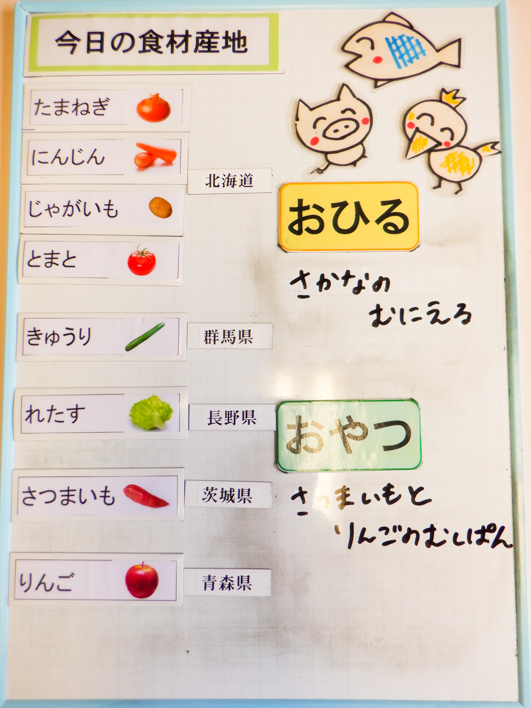 今日の食材産地
たまねぎ
にんじん
じゃがいも
とまと
北海道
きゅうり
群馬県
れたす
長野県
さつまいも
茨城県
りんご
青森県
おひる
さかなの
むにえる
おやつ
さつまいもと
りんごのむしぱん